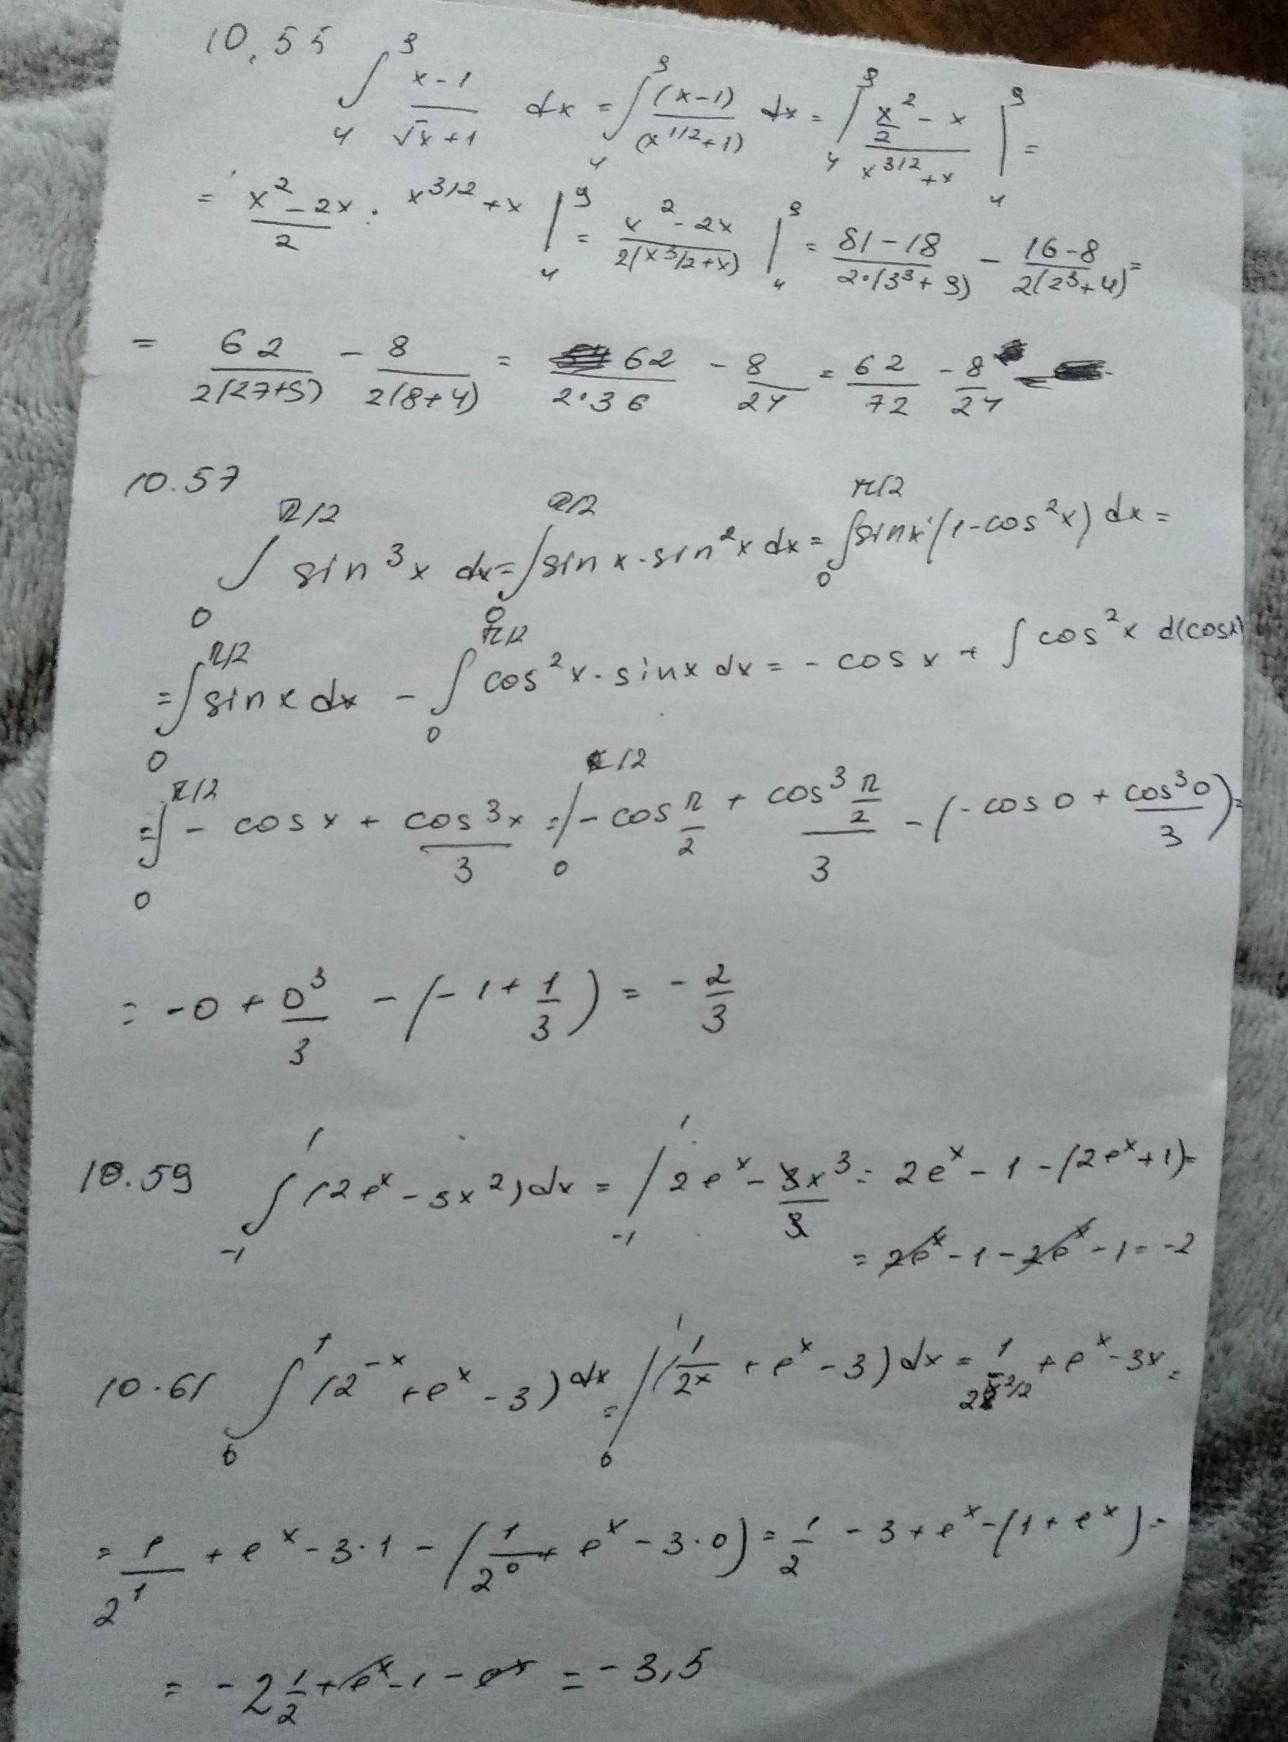 10.55 ∫₄⁹ (x-1)/(√x+1) dx = ∫₄⁹ (x-1)/(x^1/2+1) dx = |₄⁹ (x²/2 - x)/(x^3/2+x) |₄⁹ =
= (x²-2x)/2 · x^3/2+x |₄⁹ = (x²-2x)/(2(x^3/2+x)) |₄⁹ = (81-18)/(2·(3³+9)) - (16-8)/(2(2³+4)) =
= 62/(2(27+9)) - 8/(2(8+4)) = 62/(2·36) - 8/24 = 62/72 - 8/24
10.57
∫₀^π/2 sin³x dx = ∫₀^π/2 sin x · sin²x dx = ∫₀^π/2 sinx·(1-cos²x) dx =
= ∫₀^π/2 sin x dx - ∫₀^π/2 cos²x · sinx dx = - cos x + ∫ cos²x d(cosx)
= ∫₀^π/2 - cos x + cos³x/3 = |₀^π/2 - cos π/2 + (cos³ π/2)/3 - (-cos 0 + cos³0/3) =
= -0 + 0³/3 - (-1 + 1/3) = - 2/3
10.59 ∫₋₁¹ (2e^x - 3x²) dx = |₋₁¹ 2e^x - 3x³/3 = 2e^x - 1 - (2e^x + 1) =
= 2e^x - 1 - 2e^x - 1 = -2
10.61 ∫₀¹ (2^-x + e^x - 3) dx = |₀¹ (1/2^x + e^x - 3) dx = 1/2^x²/2 + e^x - 3x =
= 1/2¹ + e^x - 3·1 - (1/2⁰ + e^x - 3·0) = 1/2 - 3 + e^x - (1 + e^x) =
= -2 1/2 + e^x - 1 - e^x = -3,5